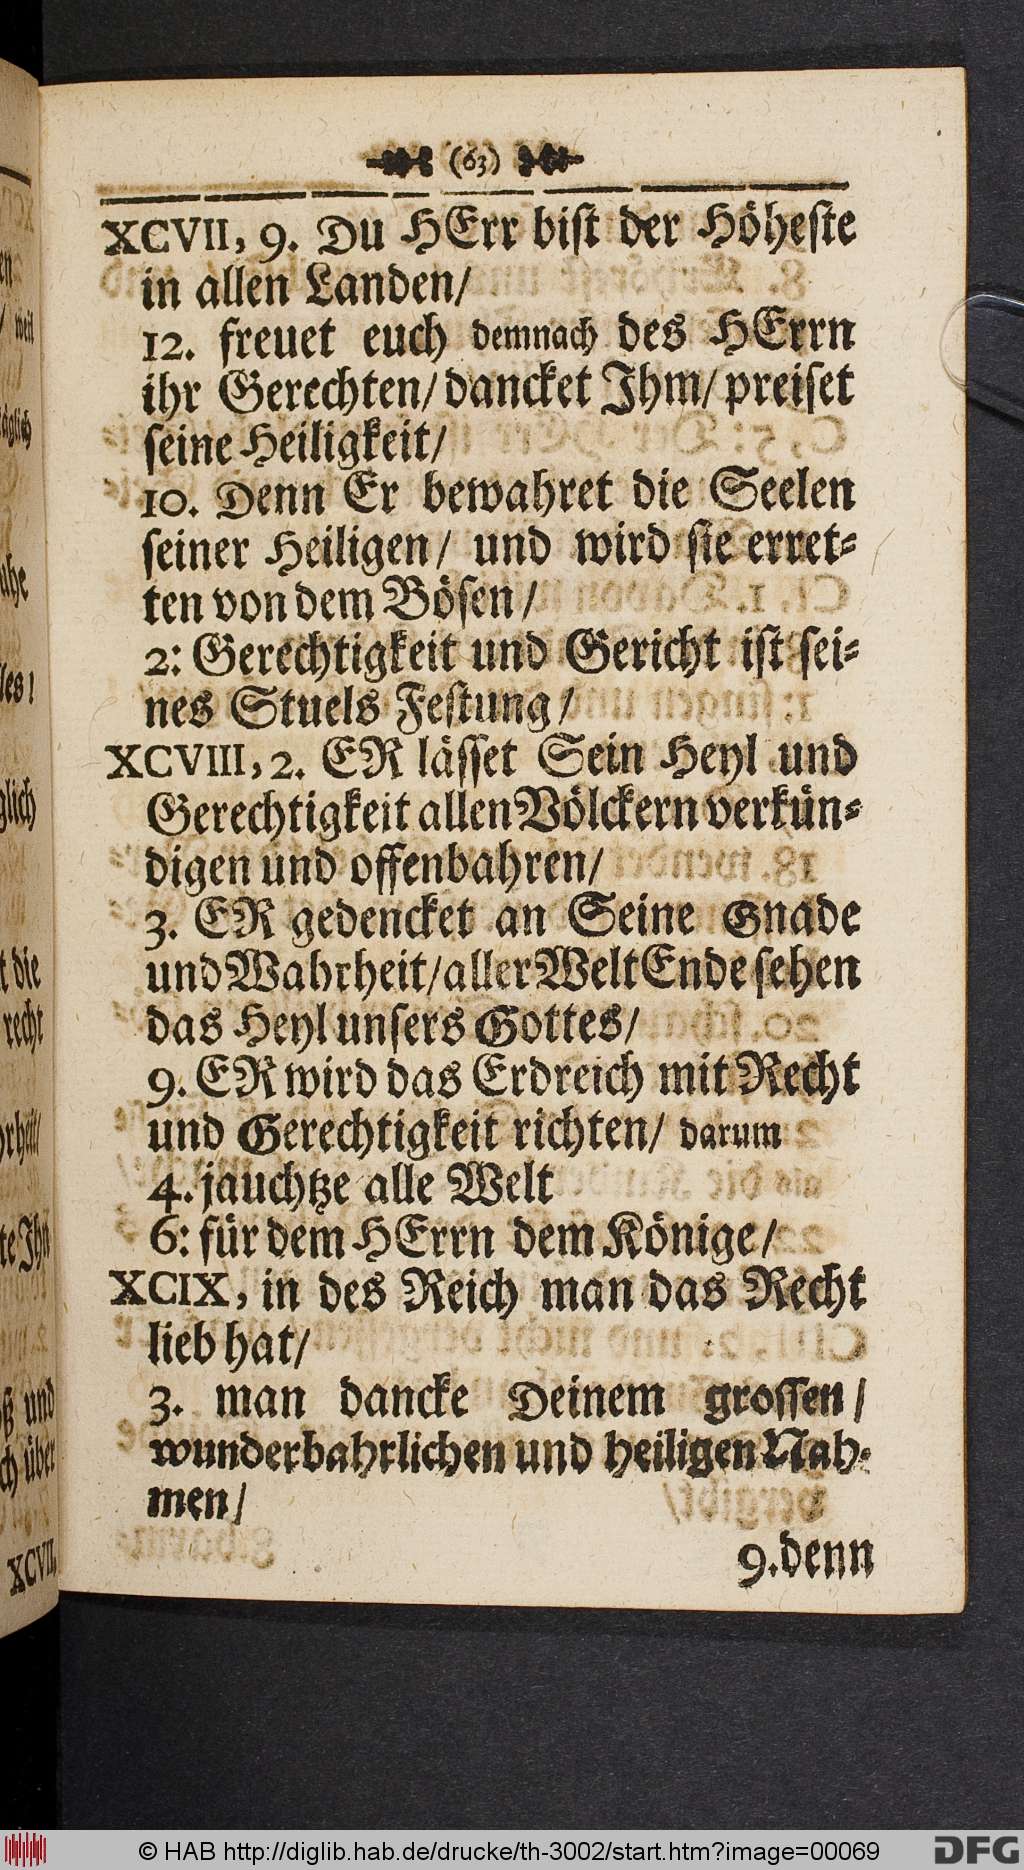 (63)
XCVII, 9. Du HErr bist der Höheste
in allen Landen/
12. freuet euch demnach des HErrn
ihr Gerechten/ dancket Jhm/ preiset
seine Heiligkeit/
10. Denn Er bewahret die Seelen
seiner Heiligen/ und wird sie erret-
ten von dem Bösen/
2: Gerechtigkeit und Gericht ist sei-
nes Stuels Festung/
XCVIII, 2. ER lässet Sein Heyl und
Gerechtigkeit allen Völckern verkün-
digen und offenbahren/
3. ER gedencket an Seine Gnade
und Wahrheit/ aller Welt Ende sehen
das Heyl unsers Gottes/
9. ER wird das Erdreich mit Recht
und Gerechtigkeit richten/ darum
4. jauchtze alle Welt
6: für dem HErrn dem Könige/
XCIX, in des Reich man das Recht
lieb hat/
3. man dancke Deinem grossen/
wunderbahrlichen und heiligen Nah-
men/
9. denn
weil
täglich
t die
recht
und
über
XCVII,
© HAB http://diglib.hab.de/drucke/th-3002/start.htm?image=00069
DFG